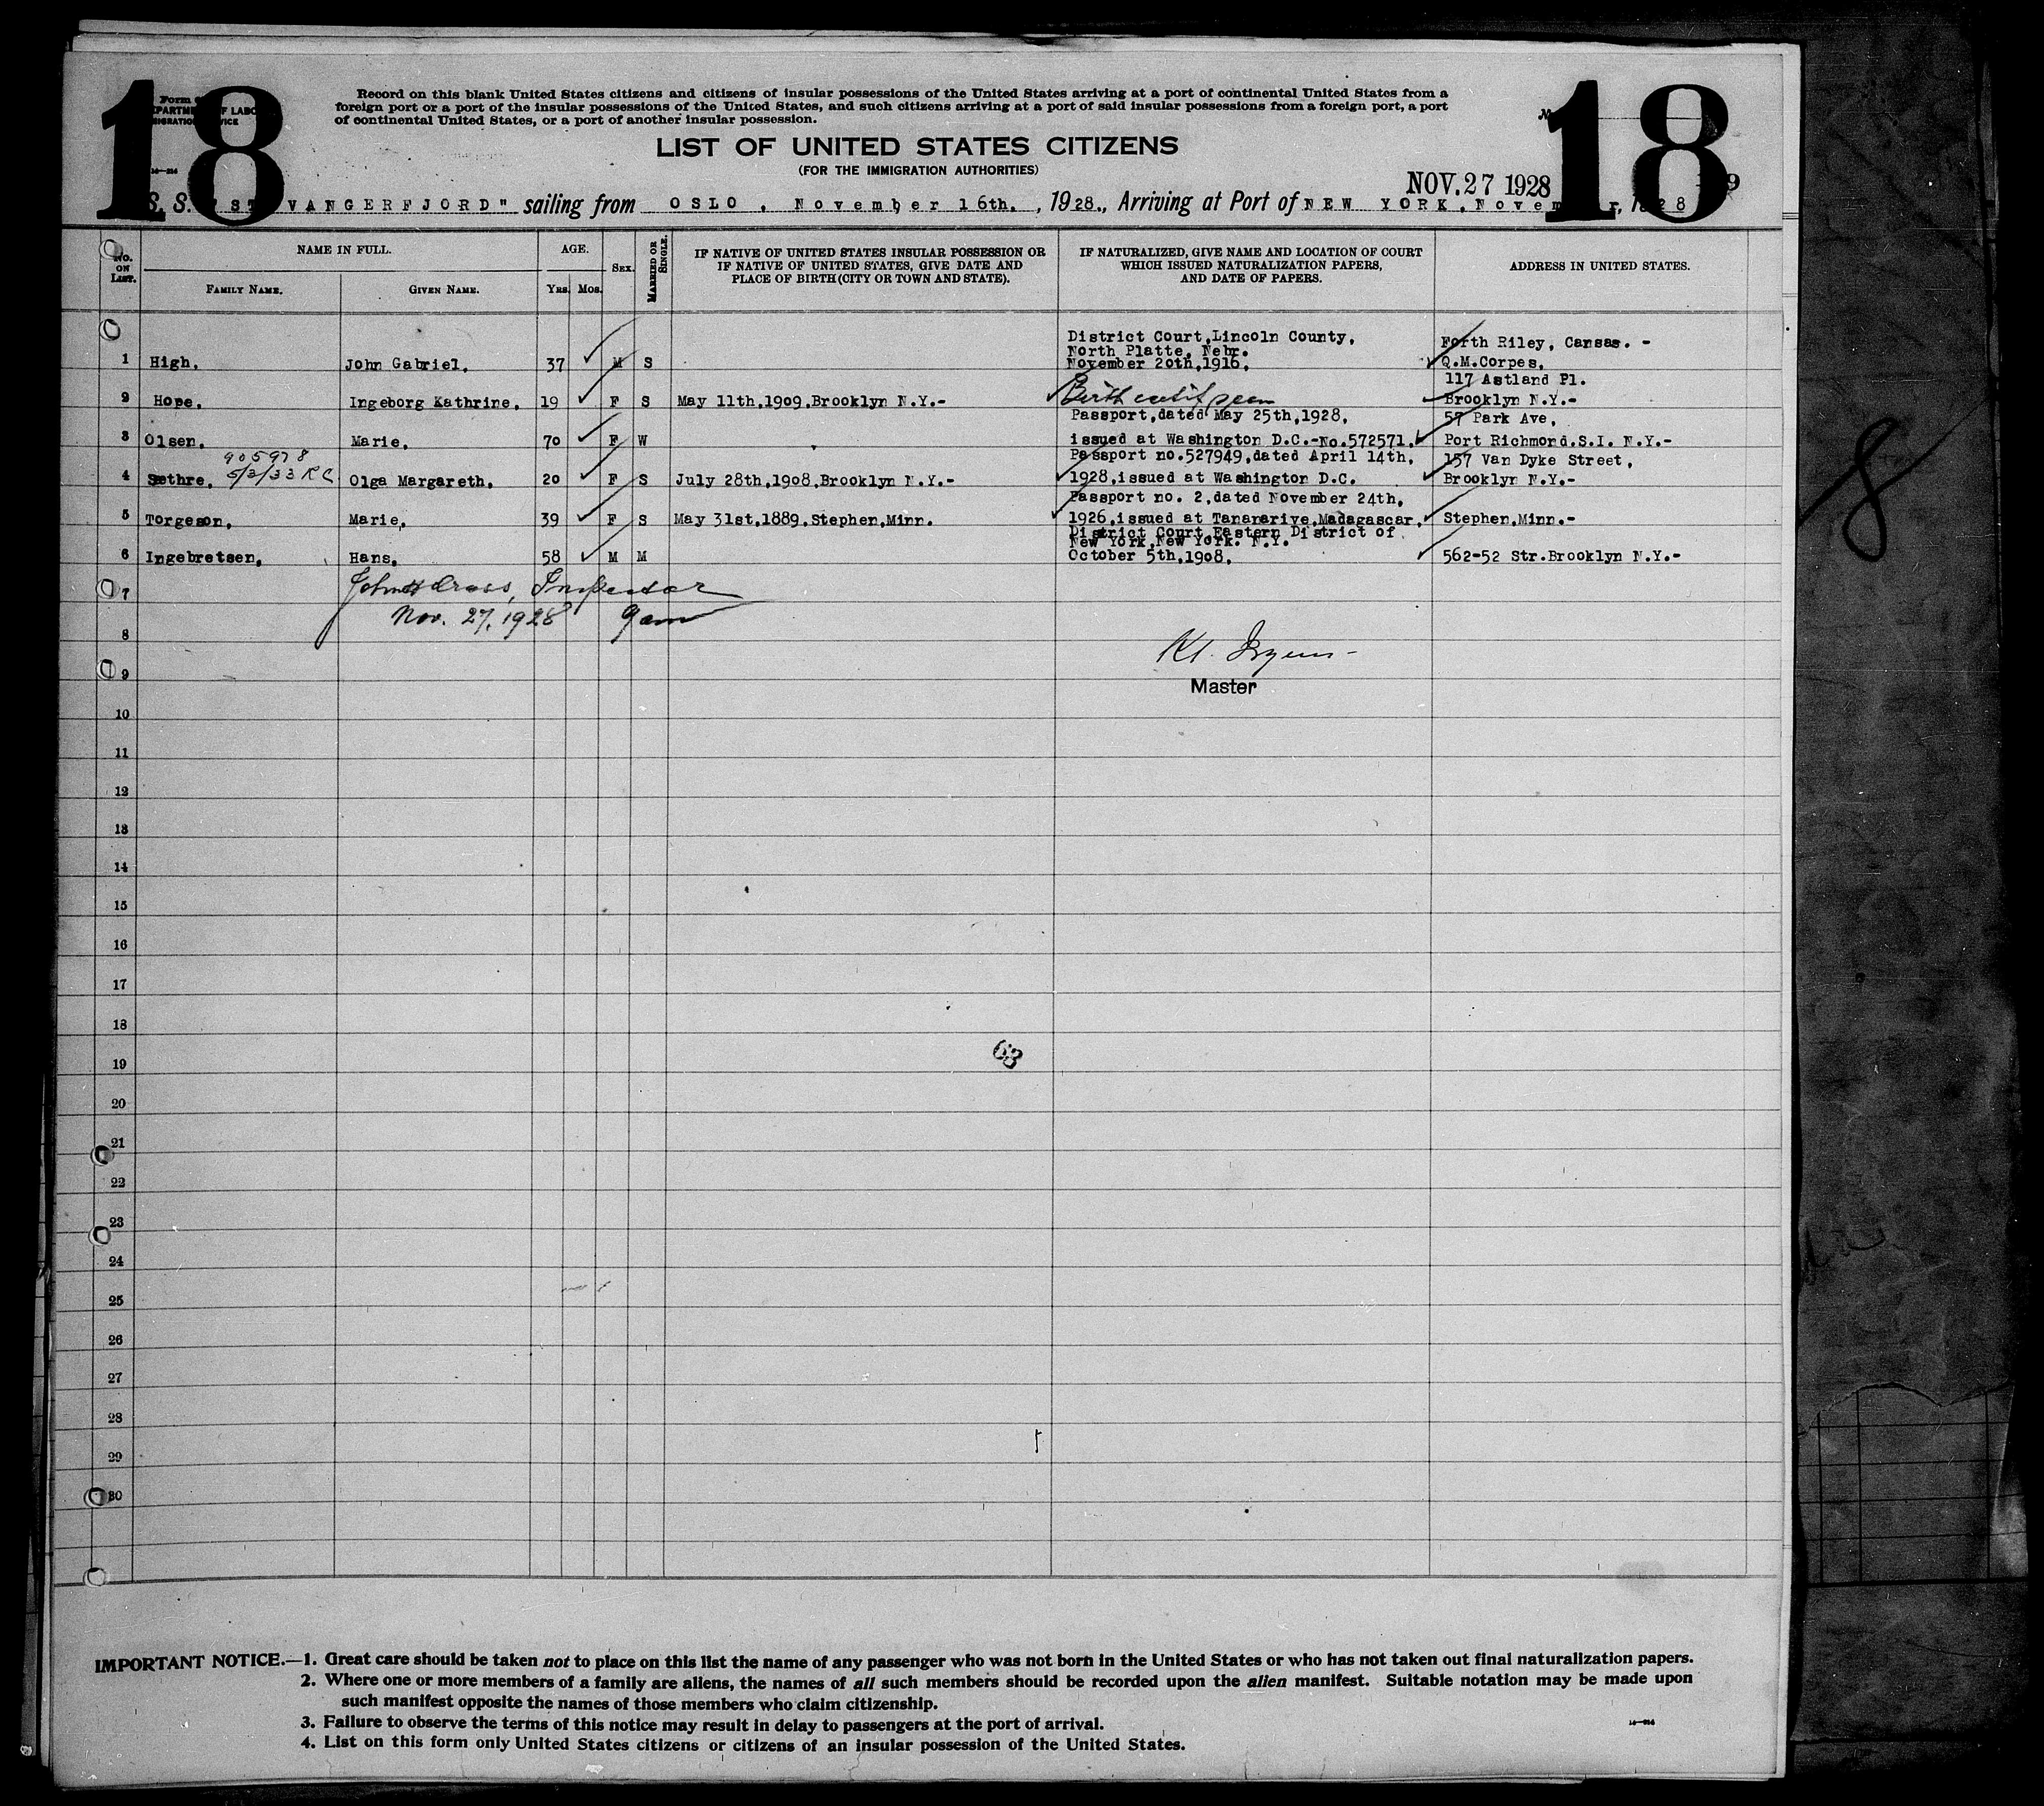 18
18
Form
DEPARTMENT OF LABOR
IMMIGRATION SERVICE
Record on this blank United States citizens and citizens of insular possessions of the United States arriving at a port of continental United States from a
foreign port or a port of the insular possessions of the United States, and such citizens arriving at a port of said insular possessions from a foreign port, a port
of continental United States, or a port of another insular possession.
LIST OF UNITED STATES CITIZENS
(FOR THE IMMIGRATION AUTHORITIES)
NOV. 27 1928
S. S. "STAVANGERFJORD" sailing from OSLO, November 16th., 1928., Arriving at Port of NEW YORK, November, 1928
NO. ON LIST.
NAME IN FULL.
FAMILY NAME.
GIVEN NAME.
AGE.
YRS. MOS.
SEX.
MARRIED OR SINGLE.
IF NATIVE OF UNITED STATES INSULAR POSSESSION OR
IF NATIVE OF UNITED STATES, GIVE DATE AND
PLACE OF BIRTH (CITY OR TOWN AND STATE).
IF NATURALIZED, GIVE NAME AND LOCATION OF COURT
WHICH ISSUED NATURALIZATION PAPERS,
AND DATE OF PAPERS.
ADDRESS IN UNITED STATES.
District Court, Lincoln County,
North Platte, Nebr. Forth Riley, Cansas. -
1 High, John Gabriel, 37 M S November 20th, 1916, Q.M.Corpes,
117 Astland Pl.
2 Hope, Ingeborg Kathrine, 19 F S May 11th, 1909, Brooklyn N.Y.- Birth certif seen Brooklyn N.Y.-
Passport, dated May 25th, 1928, 57 Park Ave,
3 Olsen, Marie, 70 F W issued at Washington D.C.-No.572571, Port Richmond.S.I. N.Y.-
905978 Passport no.527949, dated April 14th, 157 Van Dyke Street,
4 Sæthre, 5/3/33 RC Olga Margareth, 20 F S July 28th, 1908, Brooklyn N.Y.- 1928, issued at Washington D.C. Brooklyn N.Y.-
Passport no. 2, dated November 24th,
5 Torgeson, Marie, 39 F S May 31st, 1889, Stephen, Minn. 1926, issued at Tananarive, Madagascar, Stephen, Minn.-
District Court, Eastern District of
New York, New York. N.Y.
6 Ingebretsen, Hans, 58 M M October 5th, 1908, 562-52 Str. Brooklyn N.Y.-
7 John H Cross, Inspector
Nov. 27, 1928 9am
8
Master
9
10
11
12
13
14
15
16
17
18
63
19
20
21
22
23
24
25
26
27
28
29
30
IMPORTANT NOTICE.—1. Great care should be taken not to place on this list the name of any passenger who was not born in the United States or who has not taken out final naturalization papers.
2. Where one or more members of a family are aliens, the names of all such members should be recorded upon the alien manifest. Suitable notation may be made upon
such manifest opposite the names of those members who claim citizenship.
3. Failure to observe the terms of this notice may result in delay to passengers at the port of arrival.
4. List on this form only United States citizens or citizens of an insular possession of the United States.
8